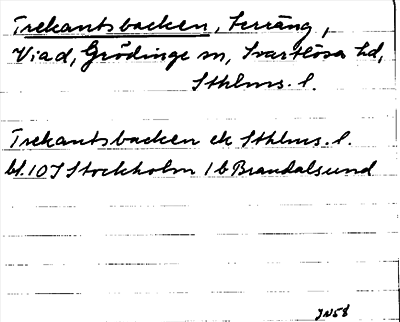 Trekantsbacken, Terräng,
Viad, Grödinge sn, Svartlösa hd,
Sthlms. l.
Trekantsbacken ek Sthlms. l.
bl. 10 I Stockholm 1b Brandalsund
JN58